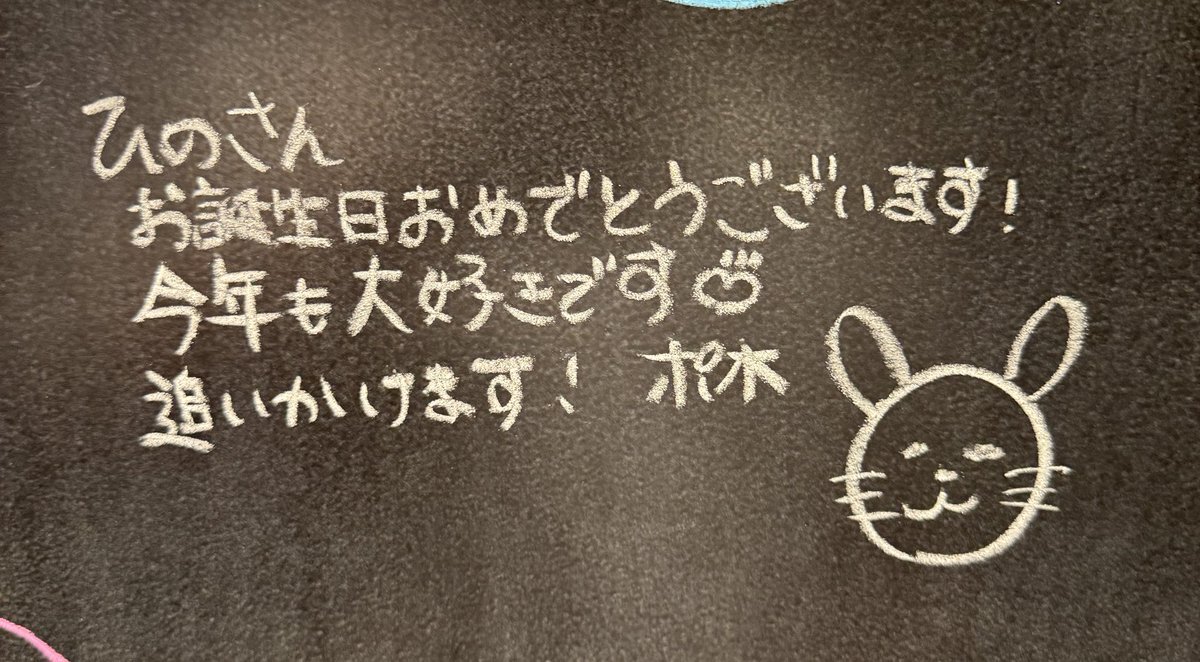 ひのさん
お誕生日おめでとうございます!
今年も大好きです♡
追いかけます! ポ木